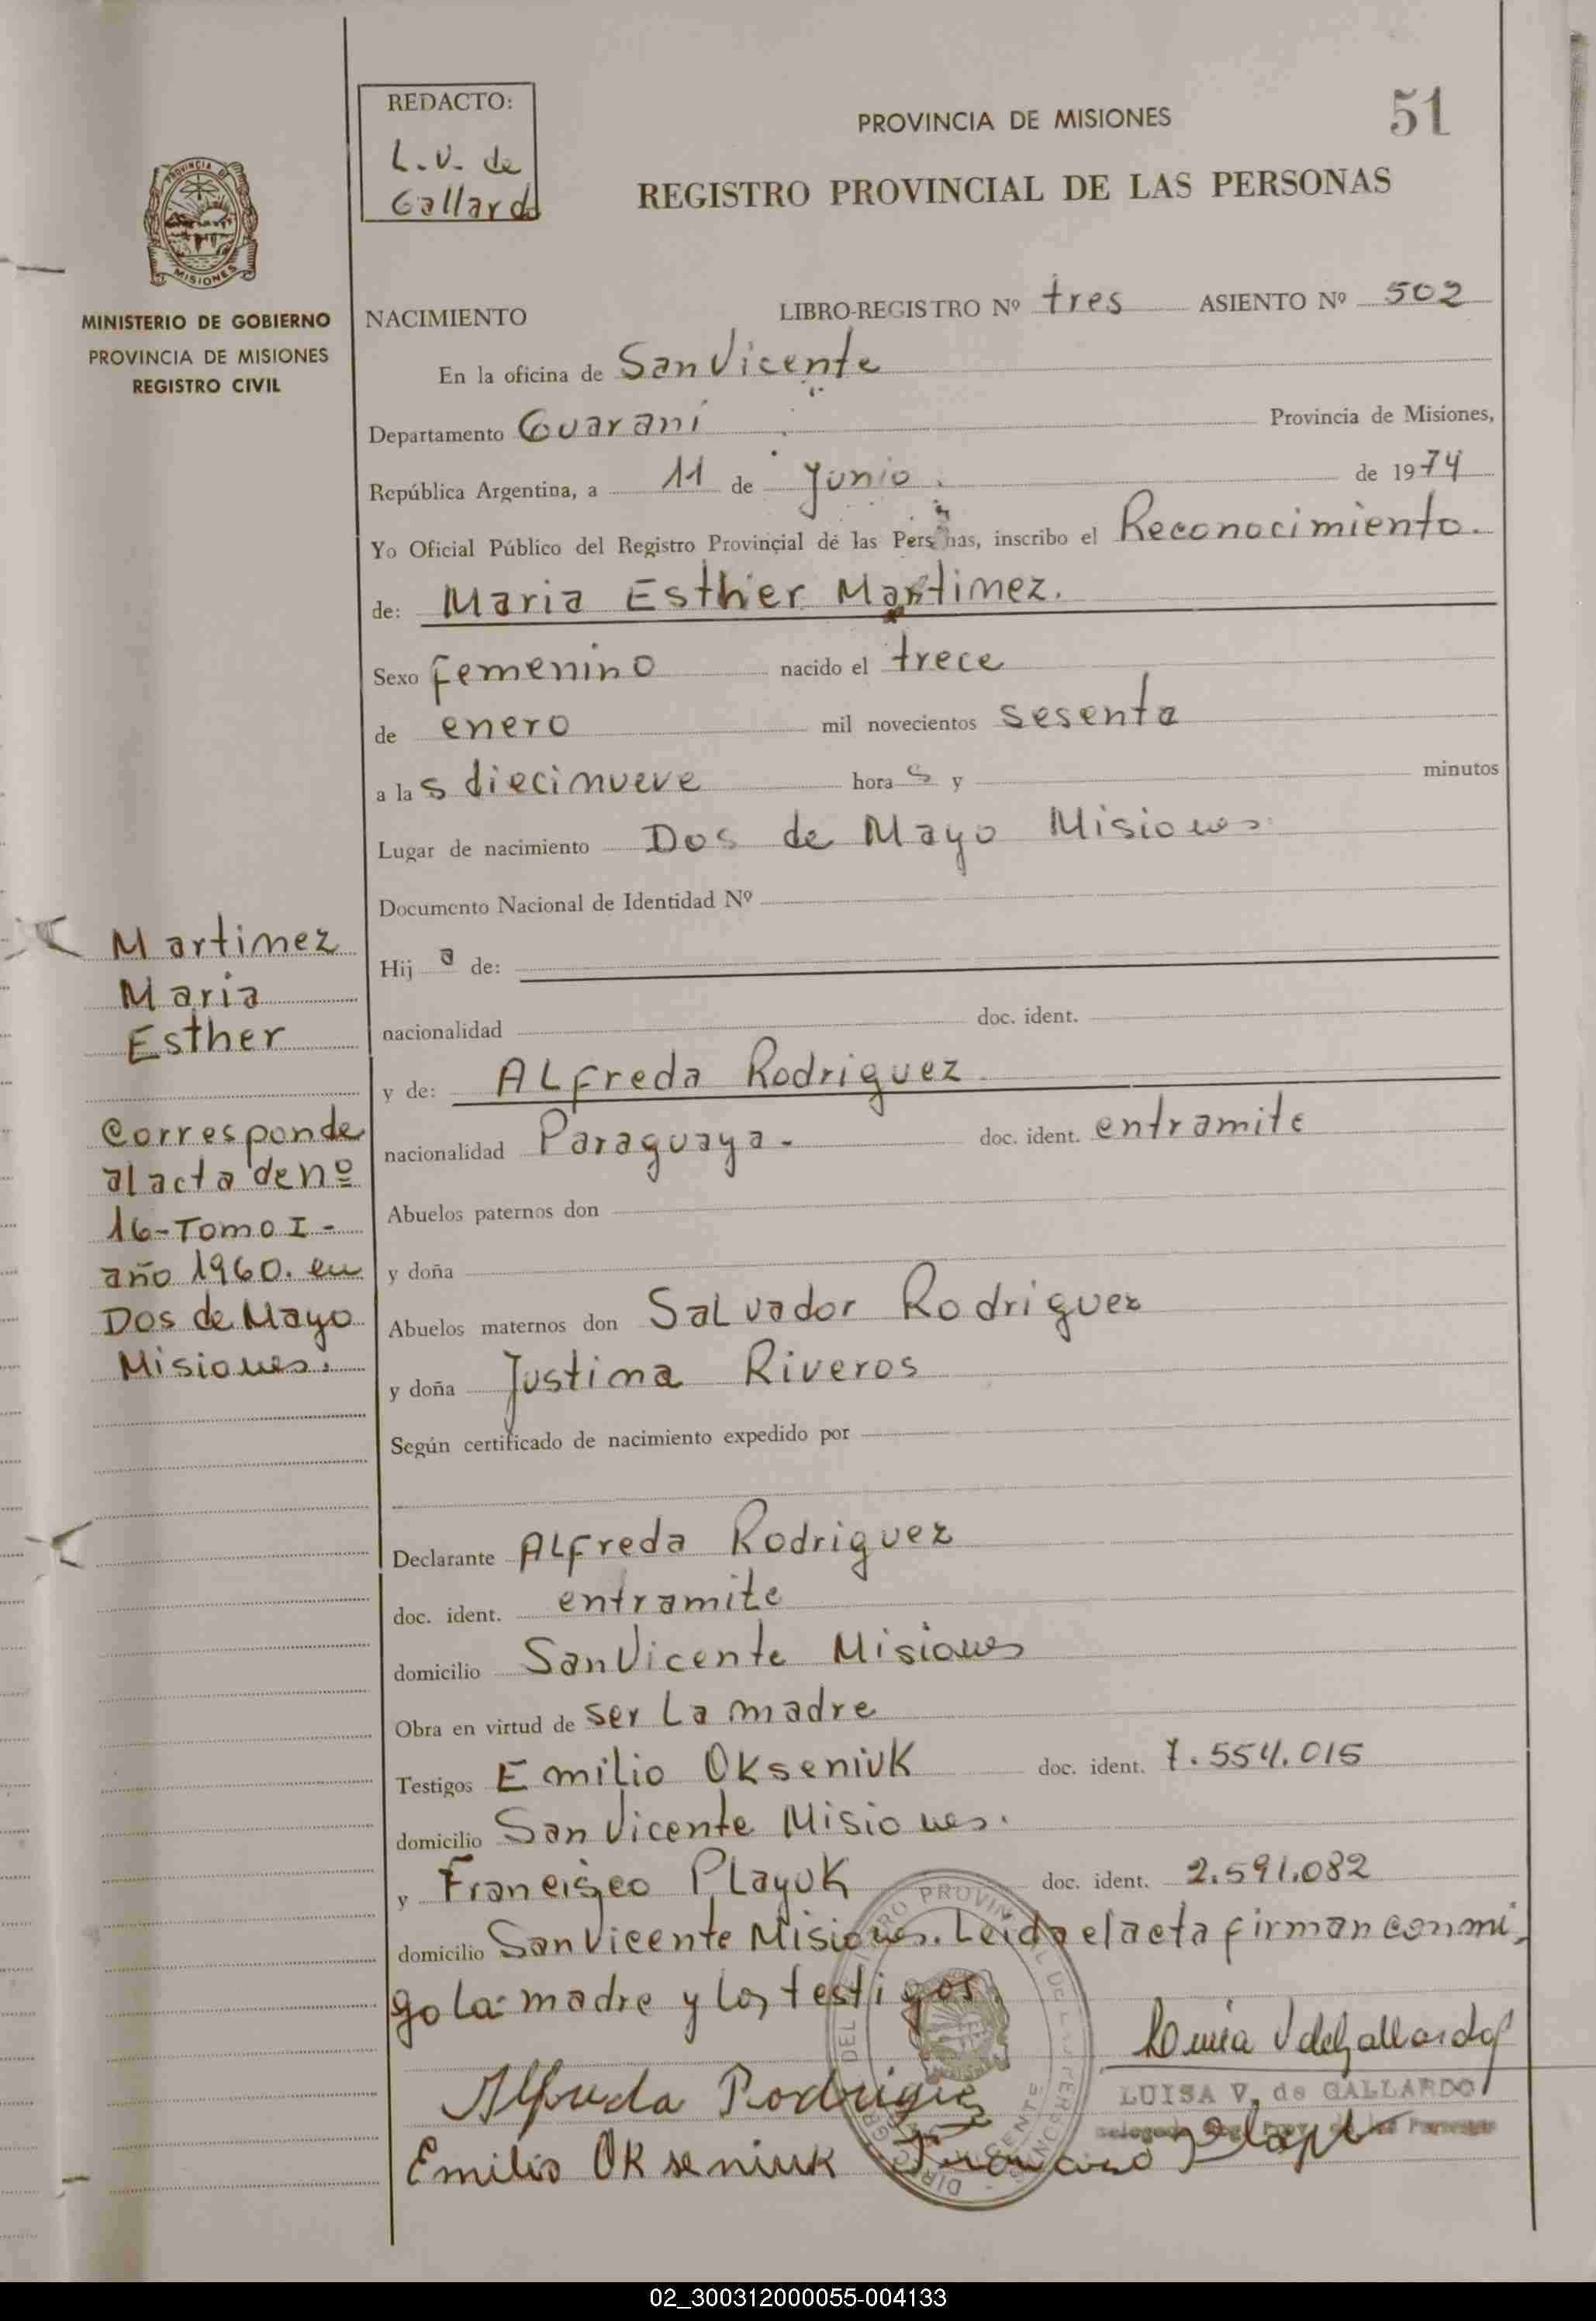 REDACTO:
L.V. de
Gallardo
PROVINCIA DE MISIONES
51
REGISTRO PROVINCIAL DE LAS PERSONAS
PROVINCIA DE
MISIONES
MINISTERIO DE GOBIERNO
PROVINCIA DE MISIONES
REGISTRO CIVIL
NACIMIENTO LIBRO-REGISTRO Nº tres ASIENTO Nº 502
En la oficina de San Vicente
Departamento Guaraní Provincia de Misiones,
República Argentina, a 11 de Junio. de 1974
Yo Oficial Público del Registro Provincial de las Personas, inscribo el Reconocimiento.
de: Maria Esther Martinez.
Sexo femenino nacido el trece
de enero mil novecientos sesenta
a las diecinueve horas y minutos
Lugar de nacimiento Dos de Mayo Misiones
Documento Nacional de Identidad Nº
Hija de:
nacionalidad doc. ident.
y de: Alfreda Rodriguez
nacionalidad Paraguaya- doc. ident. entramite
Abuelos paternos don
y doña
Abuelos maternos don Salvador Rodriguez
y doña Justina Riveros
Según certificado de nacimiento expedido por
Declarante Alfreda Rodriguez
doc. ident. entramite
domicilio San Vicente Misiones
Obra en virtud de ser La madre
Testigos Emilio Okseniuk doc. ident. 7.554.015
domicilio San Vicente Misiones.
y Francisco Playuk doc. ident. 2.591.082
domicilio San Vicente Misiones. Leida el acta firman conmi-
go la madre y los testigos.
Martinez
Maria
Esther
Corresponde
al acta de nº
16-Tomo I-
año 1960. en
Dos de Mayo
Misiones.
Luisa V de Gallardo
LUISA V. de GALLARDO
Alfreda Rodriguez
Emilio Okseniuk Francisco
02_300312000055-004133